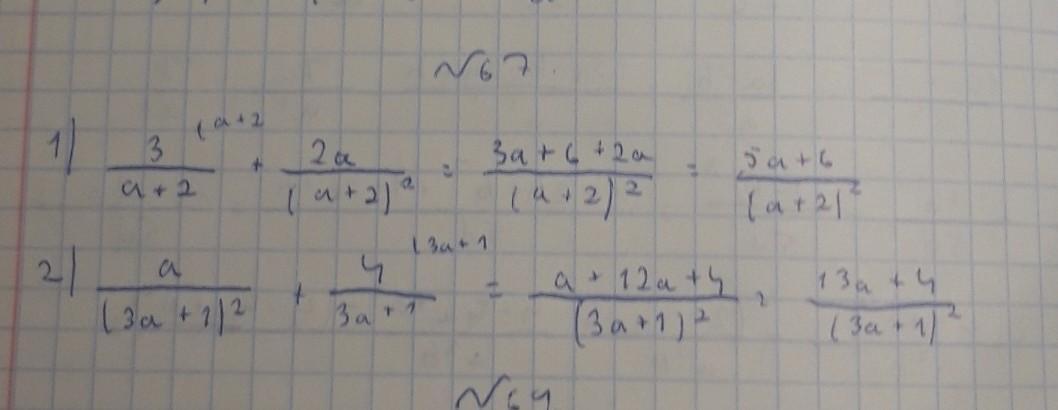 №67
1) 3/(a+2) (a+2 + 2a/(a+2)² = (3a+6+2a)/(a+2)² = (5a+6)/(a+2)²
2) a/(3a+1)² + 4/(3a+1) (3a+1 = (a+12a+4)/(3a+1)² = (13a+4)/(3a+1)²